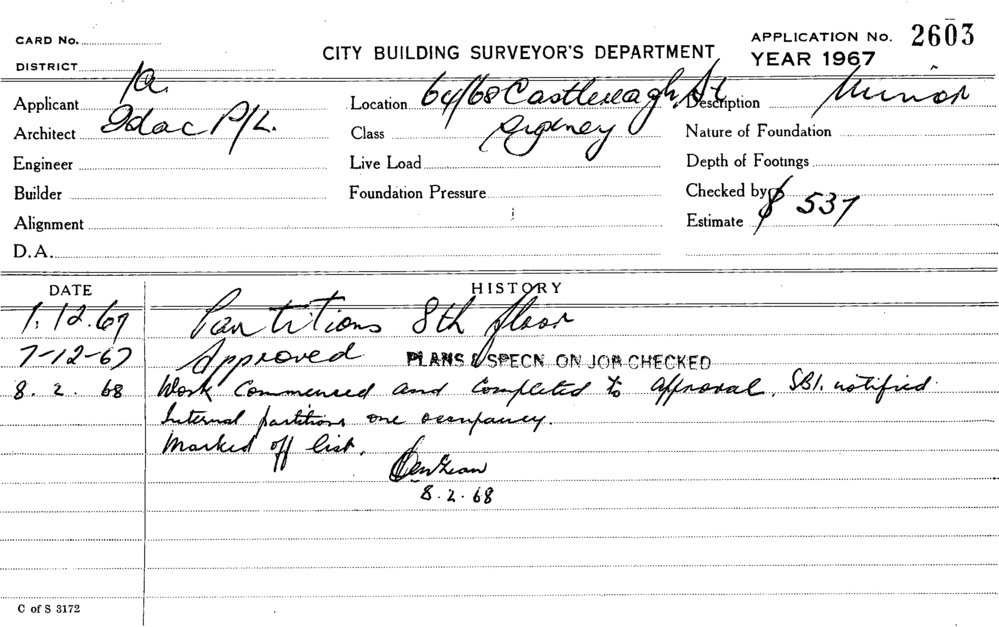 CARD No.
CITY BUILDING SURVEYOR'S DEPARTMENT
APPLICATION No. 2603
DISTRICT 1a.
YEAR 1967
Applicant
Location 64/68 Castlereagh St
Description Minor
Architect Idac P/L.
Class Sydney
Nature of Foundation
Engineer
Live Load
Depth of Footings
Builder
Foundation Pressure
Checked by
Alignment
Estimate $ 537
D.A.
DATE HISTORY
1.12.67 Partitions 8th floor
7-12-67 Approved PLANS & SPECN. ON JOB CHECKED
8. 2. 68 Work Commenced and Completed to approval. SBI. notified.
Internal partitions one occupancy.
Marked off list.
8.2.68
C of S 3172